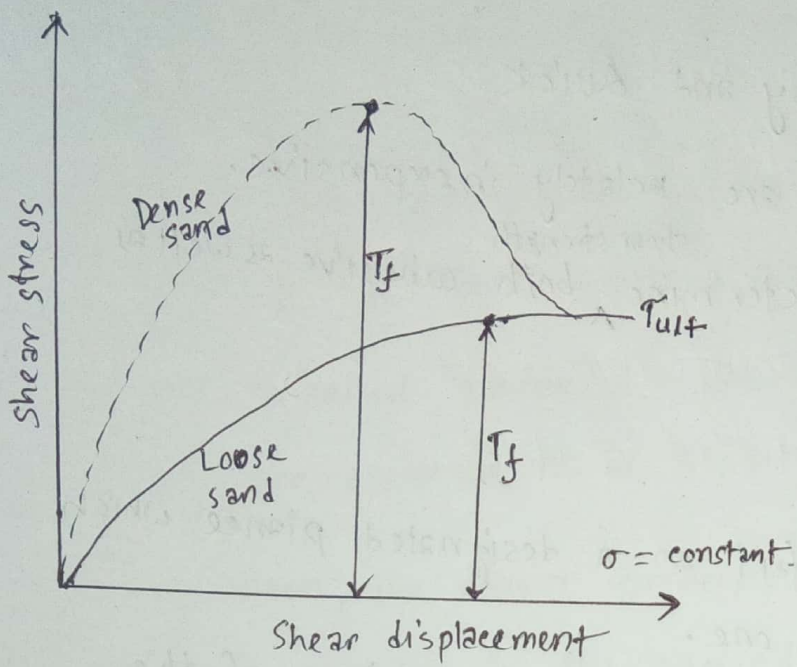 Shear stress
Dense
sand
τf
τult
τf
Loose
sand
σ = constant.
Shear displacement